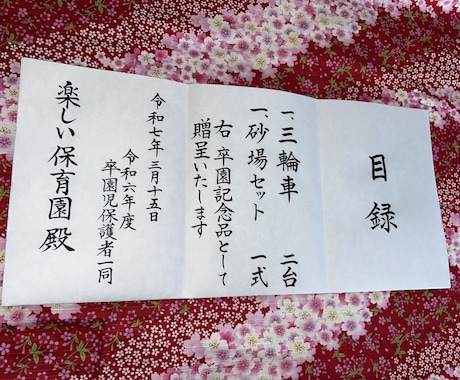 目録
一、三輪車　二台
一、砂場セット　一式
右 卒園記念品として
贈呈いたします
令和七年三月十五日
令和六年度
卒園児保護者一同
楽しい保育園殿